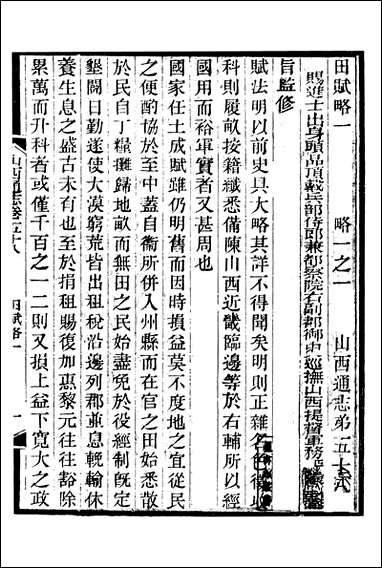 田賦略一　略一之一　山西通志弟五十八
賜進士出身頭品頂戴兵部侍郎兼都察院右副都御史巡撫山西提督軍務
旨監修
賦法明以前史具大略其詳不得聞矣明則正雜
科則履畝按籍纖悉備陳山西近畿臨邊等於右輔所以經
國用而裕軍實者又甚周也
國家任土成賦雖仍明舊而因時損益莫不度地之宜從民
之便酌協於至中蓋自衞所併入州縣而在官之田始悉散
於民自丁糧攤歸地畝而無田之民始盡免於役經制旣定
墾闢日勤遂使大漠窮荒皆出租稅沿邊列郡並息輓輸休
養生息之盛古未有也至於捐租賜復加惠黎元往往豁除
累萬而升科者或僅千百之一二則又損上益下寬大之政
山西通志卷五十八　田賦略一　一